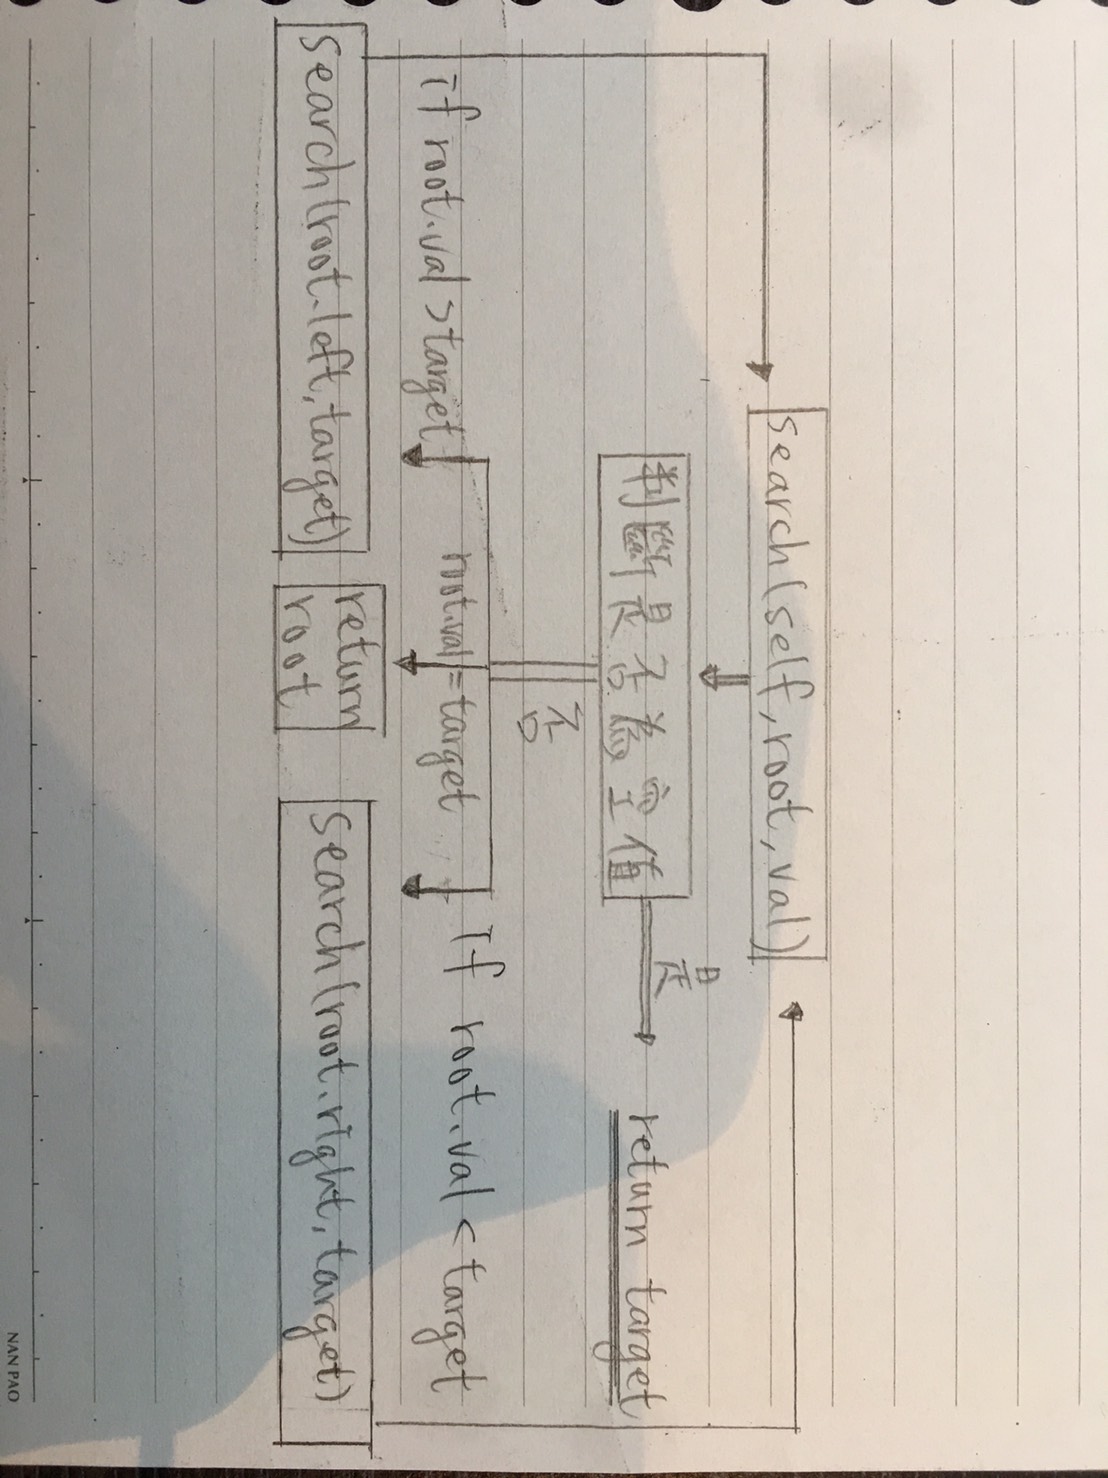 search(self,root,val)
判斷是否為空值
是
return target
否
if root.val>target
root.val=target
if root.val<target
search(root.left,target)
return
root
search(root.right,target)
NAN PAO